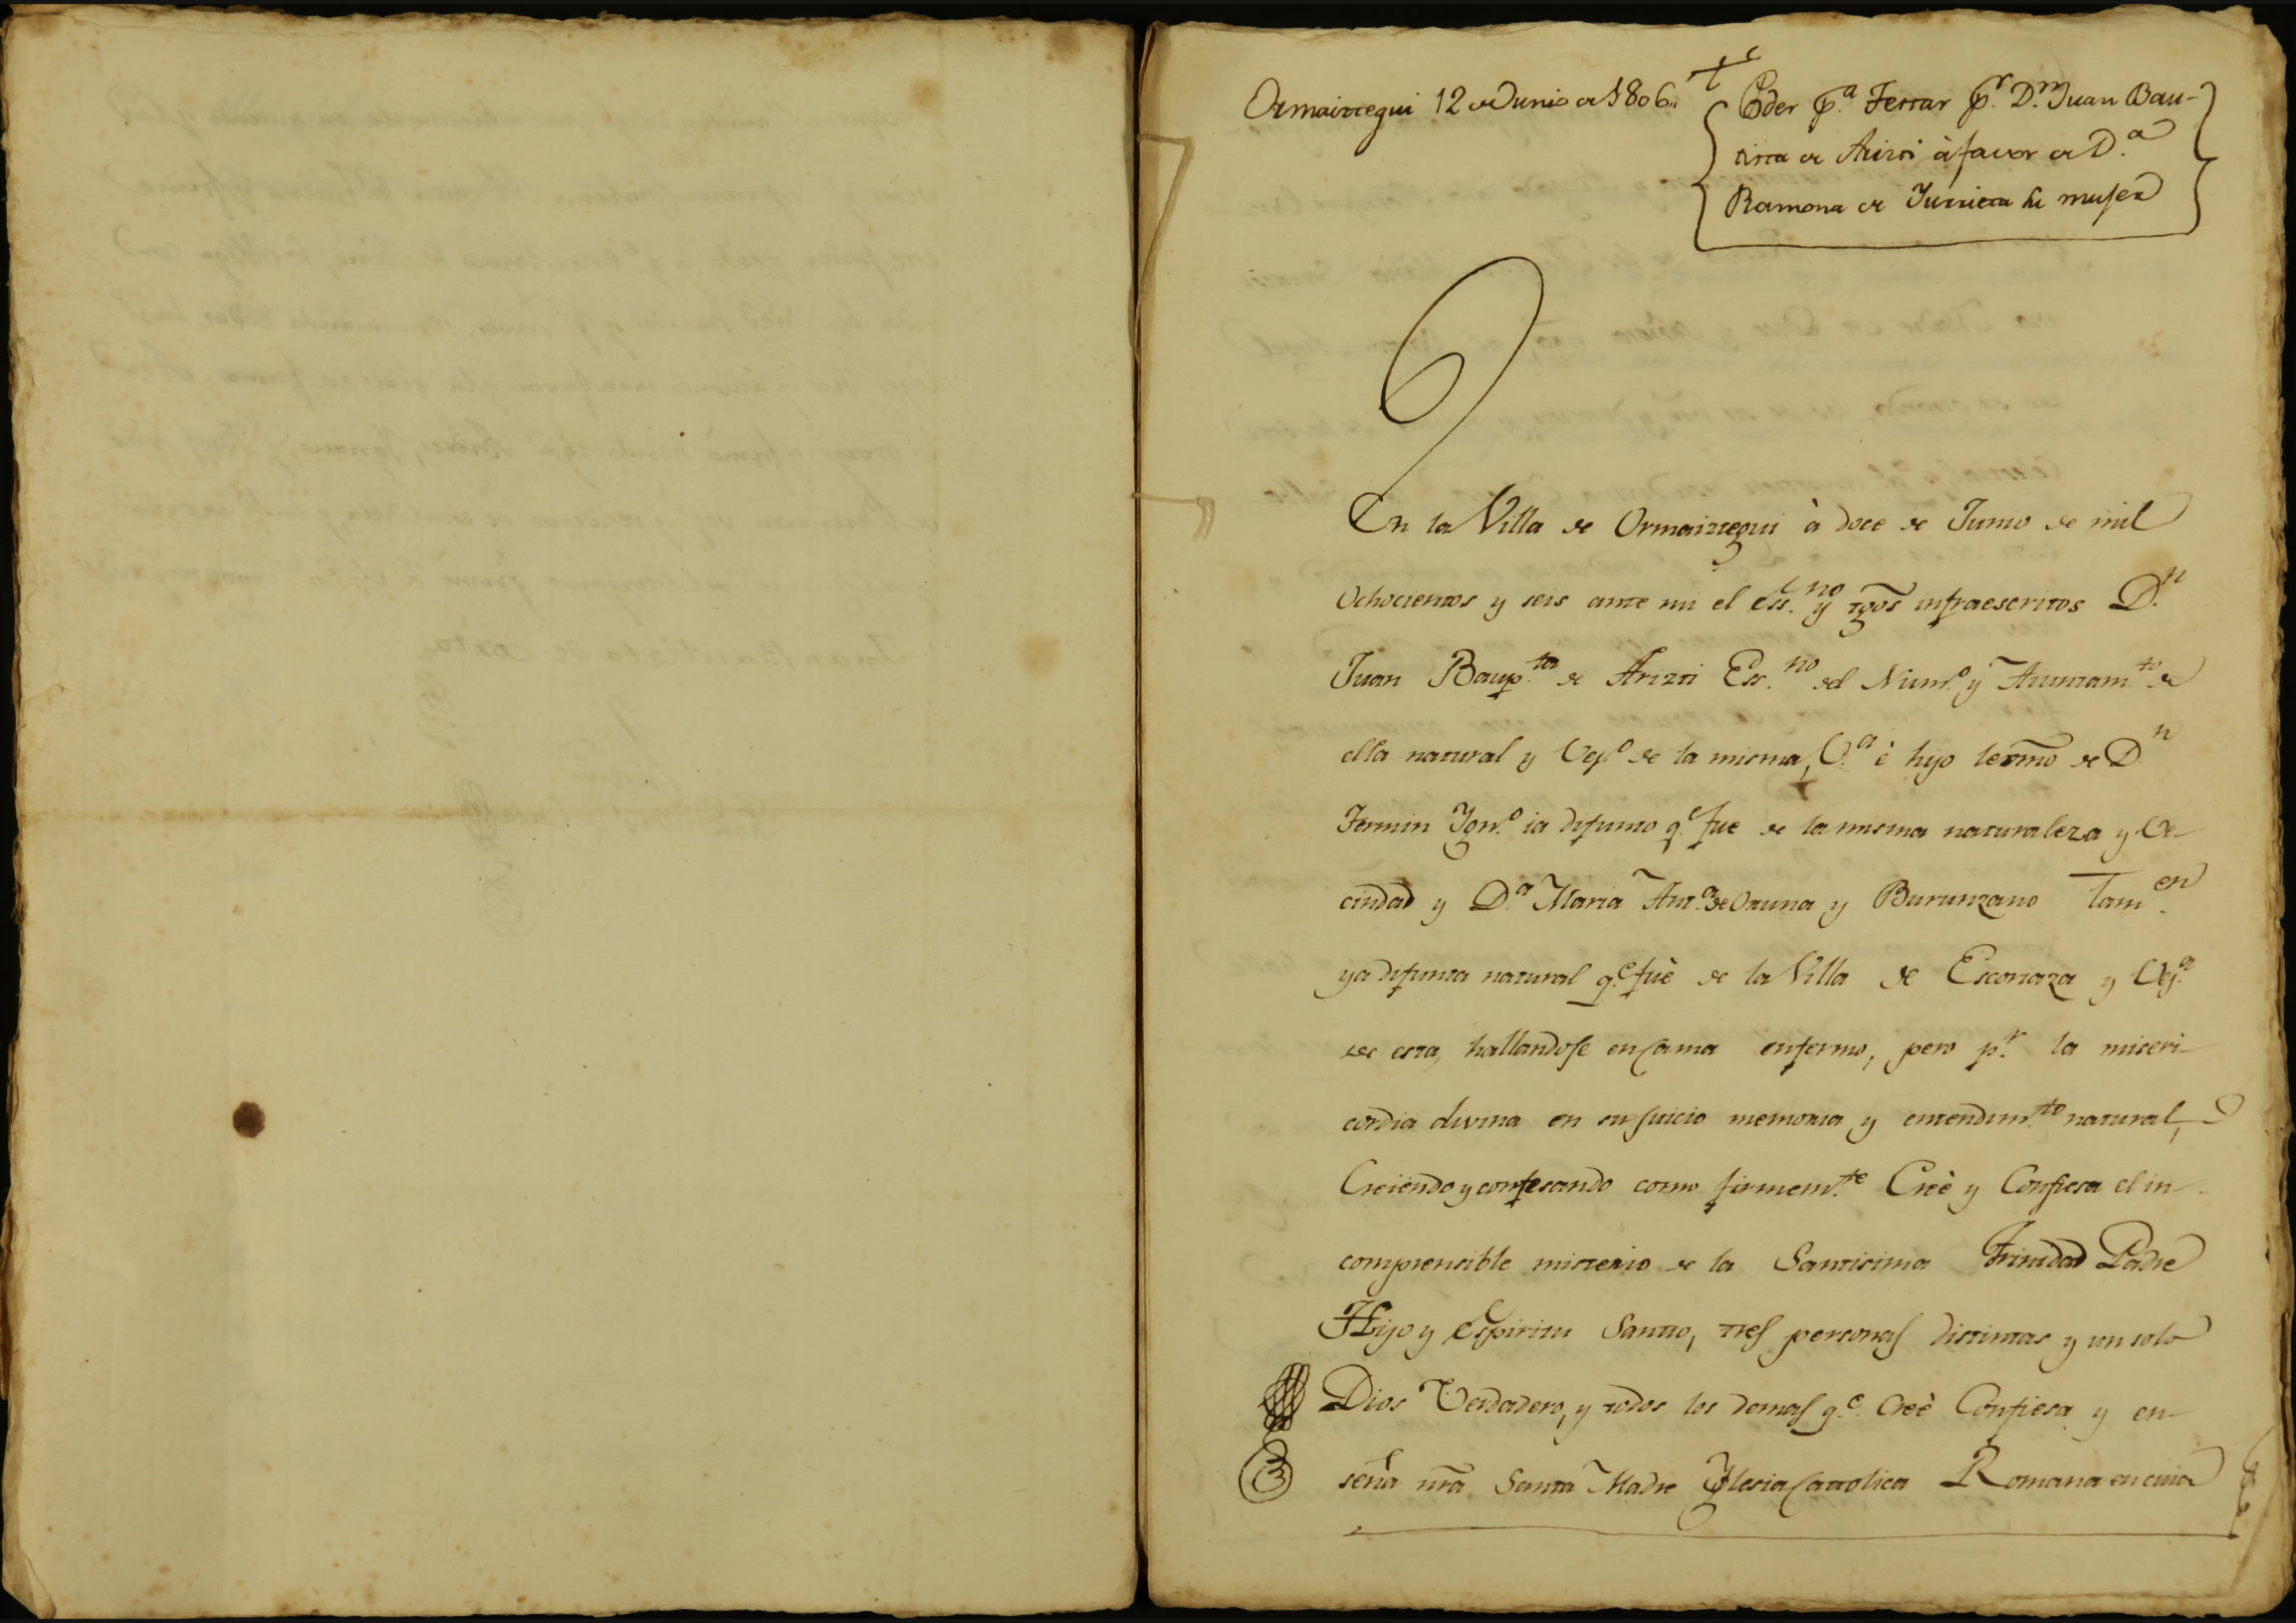 Ormaiztegui 12 de Junio de 1806,,
Poder p.ª Testar p.r D.n Juan Bau-
tista de Arizti à favor de D.ª
Ramona de Iurrieta su mujer
En la Villa de Ormaiztegui à doce de Junio de mil
Ochocientos y seis ante mi el ess.no y tgõs infraescritos D.n
Juan Baup.ta de Arizti Ess.no del Num.o y Aiuntam.to de
ella natural y Vez.o de la misma, è hijo lexmõ de D.n
Fermin Ygn.o ia difunto q.e fue de la misma naturaleza y Ve-
cindad y D.ª Maria Ant.ª de Oruna y Burunzano Tam.en
ya difunta natural q.e fuè de la Villa de Escoriaza y Vez.ª
de esta, hallandose en Cama enfermo, pero p.r la miseri-
cordia divina en su juicio memoria y entendim.to natural,
Creiendo y confesando como firmem.te Creè y Confiesa el in-
comprensible misterio de la Santisima Trinidad Padre
Hijo y Espiritu Santto, tres personas distintas y un solo
Dios Verdadero, y todos los demas q.e Creè Confiesa y en-
seña nrã Santa Madre Yglesia Cattolica Romana en cuia